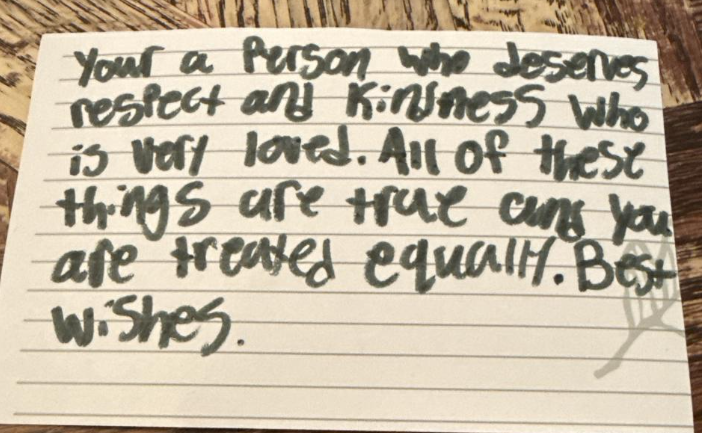 Your a Person who deserves
respect and Kindness Who
is very loved. All of these
things are true and you
are treated equally. Best
wishes.